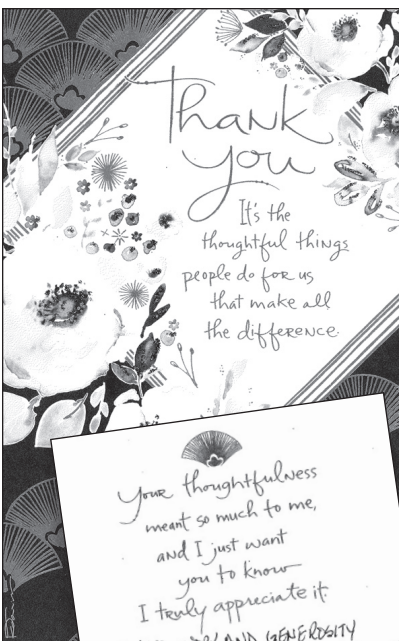 Thank
you
It's the
thoughtful things
people do for us
that make all
the difference.
Your thoughtfulness
meant so much to me,
and I just want
you to know
I truly appreciate it.
AND GENEROSITY